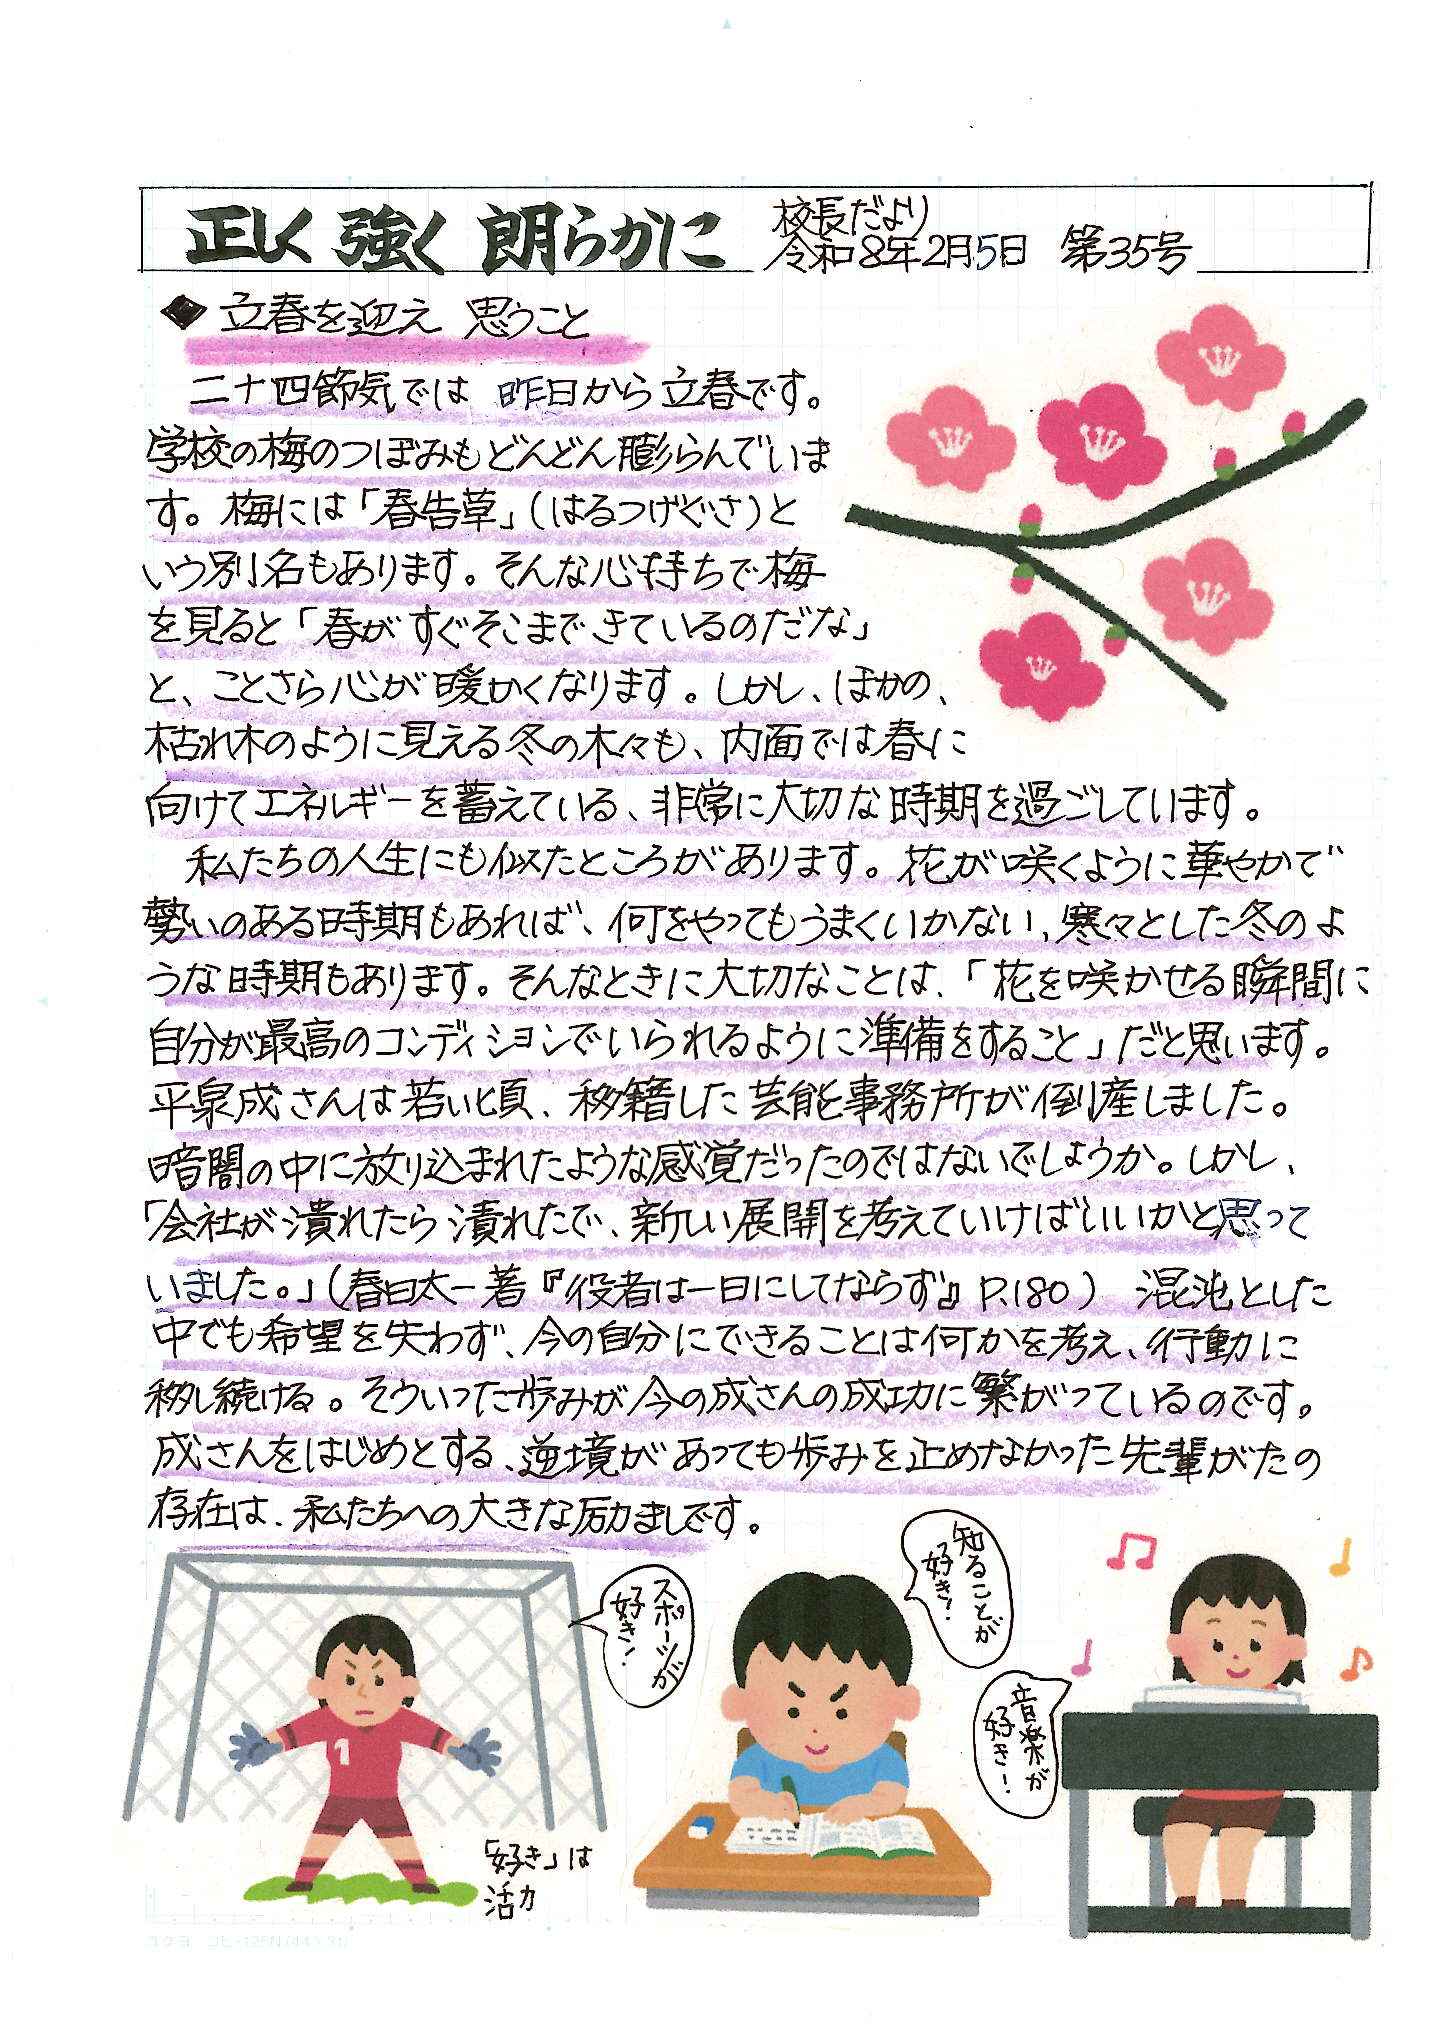 正しく 強く 朗らかに
校長だより
令和8年2月5日 第35号
◆ 立春を迎え 思うこと
二十四節気では 昨日から立春です。
学校の梅のつぼみもどんどん膨らんでいま
す。梅には「春告草」(はるつげぐさ)と
いう別名もあります。そんな心持ちで梅
を見ると「春がすぐそこまできているのだな」
と、ことさら心が暖かくなります。しかし、ほかの、
枯れ木のように見える冬の木々も、内面では春に
向けてエネルギーを蓄えている、非常に大切な時期を過ごしています。
私たちの人生にも似たところがあります。花が咲くように華やかで
勢いのある時期もあれば、何をやってもうまくいかない、寒々とした冬のよ
うな時期もあります。そんなときに大切なことは、「花を咲かせる瞬間に
自分が最高のコンディションでいられるように準備をすること」だと思います。
平泉成さんは若い頃、移籍した芸能事務所が倒産しました。
暗闇の中に放り込まれたような感覚だったのではないでしょうか。しかし、
「会社が潰れたら潰れたで、新しい展開を考えていけばいいかと思って
いました。」(春日太一著『役者は一日にしてならず』P.180) 混沌とした
中でも希望を失わず、今の自分にできることは何かを考え、行動に
移し続ける。そういった歩みが今の成さんの成功に繋がっているのです。
成さんをはじめとする、逆境があっても歩みを止めなかった先輩がたの
存在は、私たちへの大きな励ましです。
スポーツが
好き!
知ることが
好き!
音楽が
好き!
1
「好き」は
活力
コクヨ コヒ-125N(44×31)